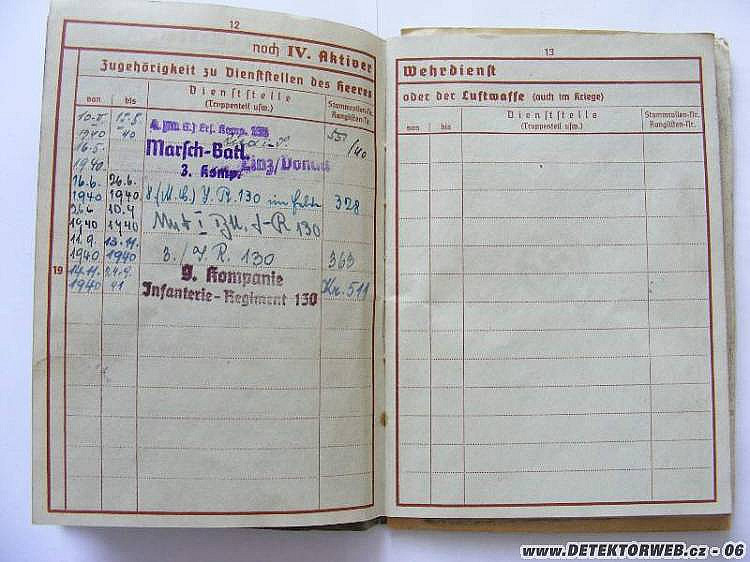 12
noch IV. Aktiver
Zugehörigkeit zu Dienststellen des Heeres
von bis Dienststelle (Truppenteil usw.) Stammrollen-Nr. Ranglisten-Nr.
1940 40 Ers. Komp. /40
16.5. Marsch-Batl. Linz/Donau
1940. 3. Komp.
16.6. 26.6.
1940 1940 8 (M.G.) J. R. 130 328
26.6 10.9
1940 1940 I R 130
11.9. 13.11.
1940 1940 3./J. R. 130 363
19 14.11. 9. Kompanie
1940 41 Infanterie-Regiment 130 Kr. 511
13
Wehrdienst
oder der Luftwaffe (auch im Kriege)
von bis Dienststelle (Truppenteil usw.) Stammrollen-Nr. Ranglisten-Nr.
www.DETEKTORWEB.cz - 06